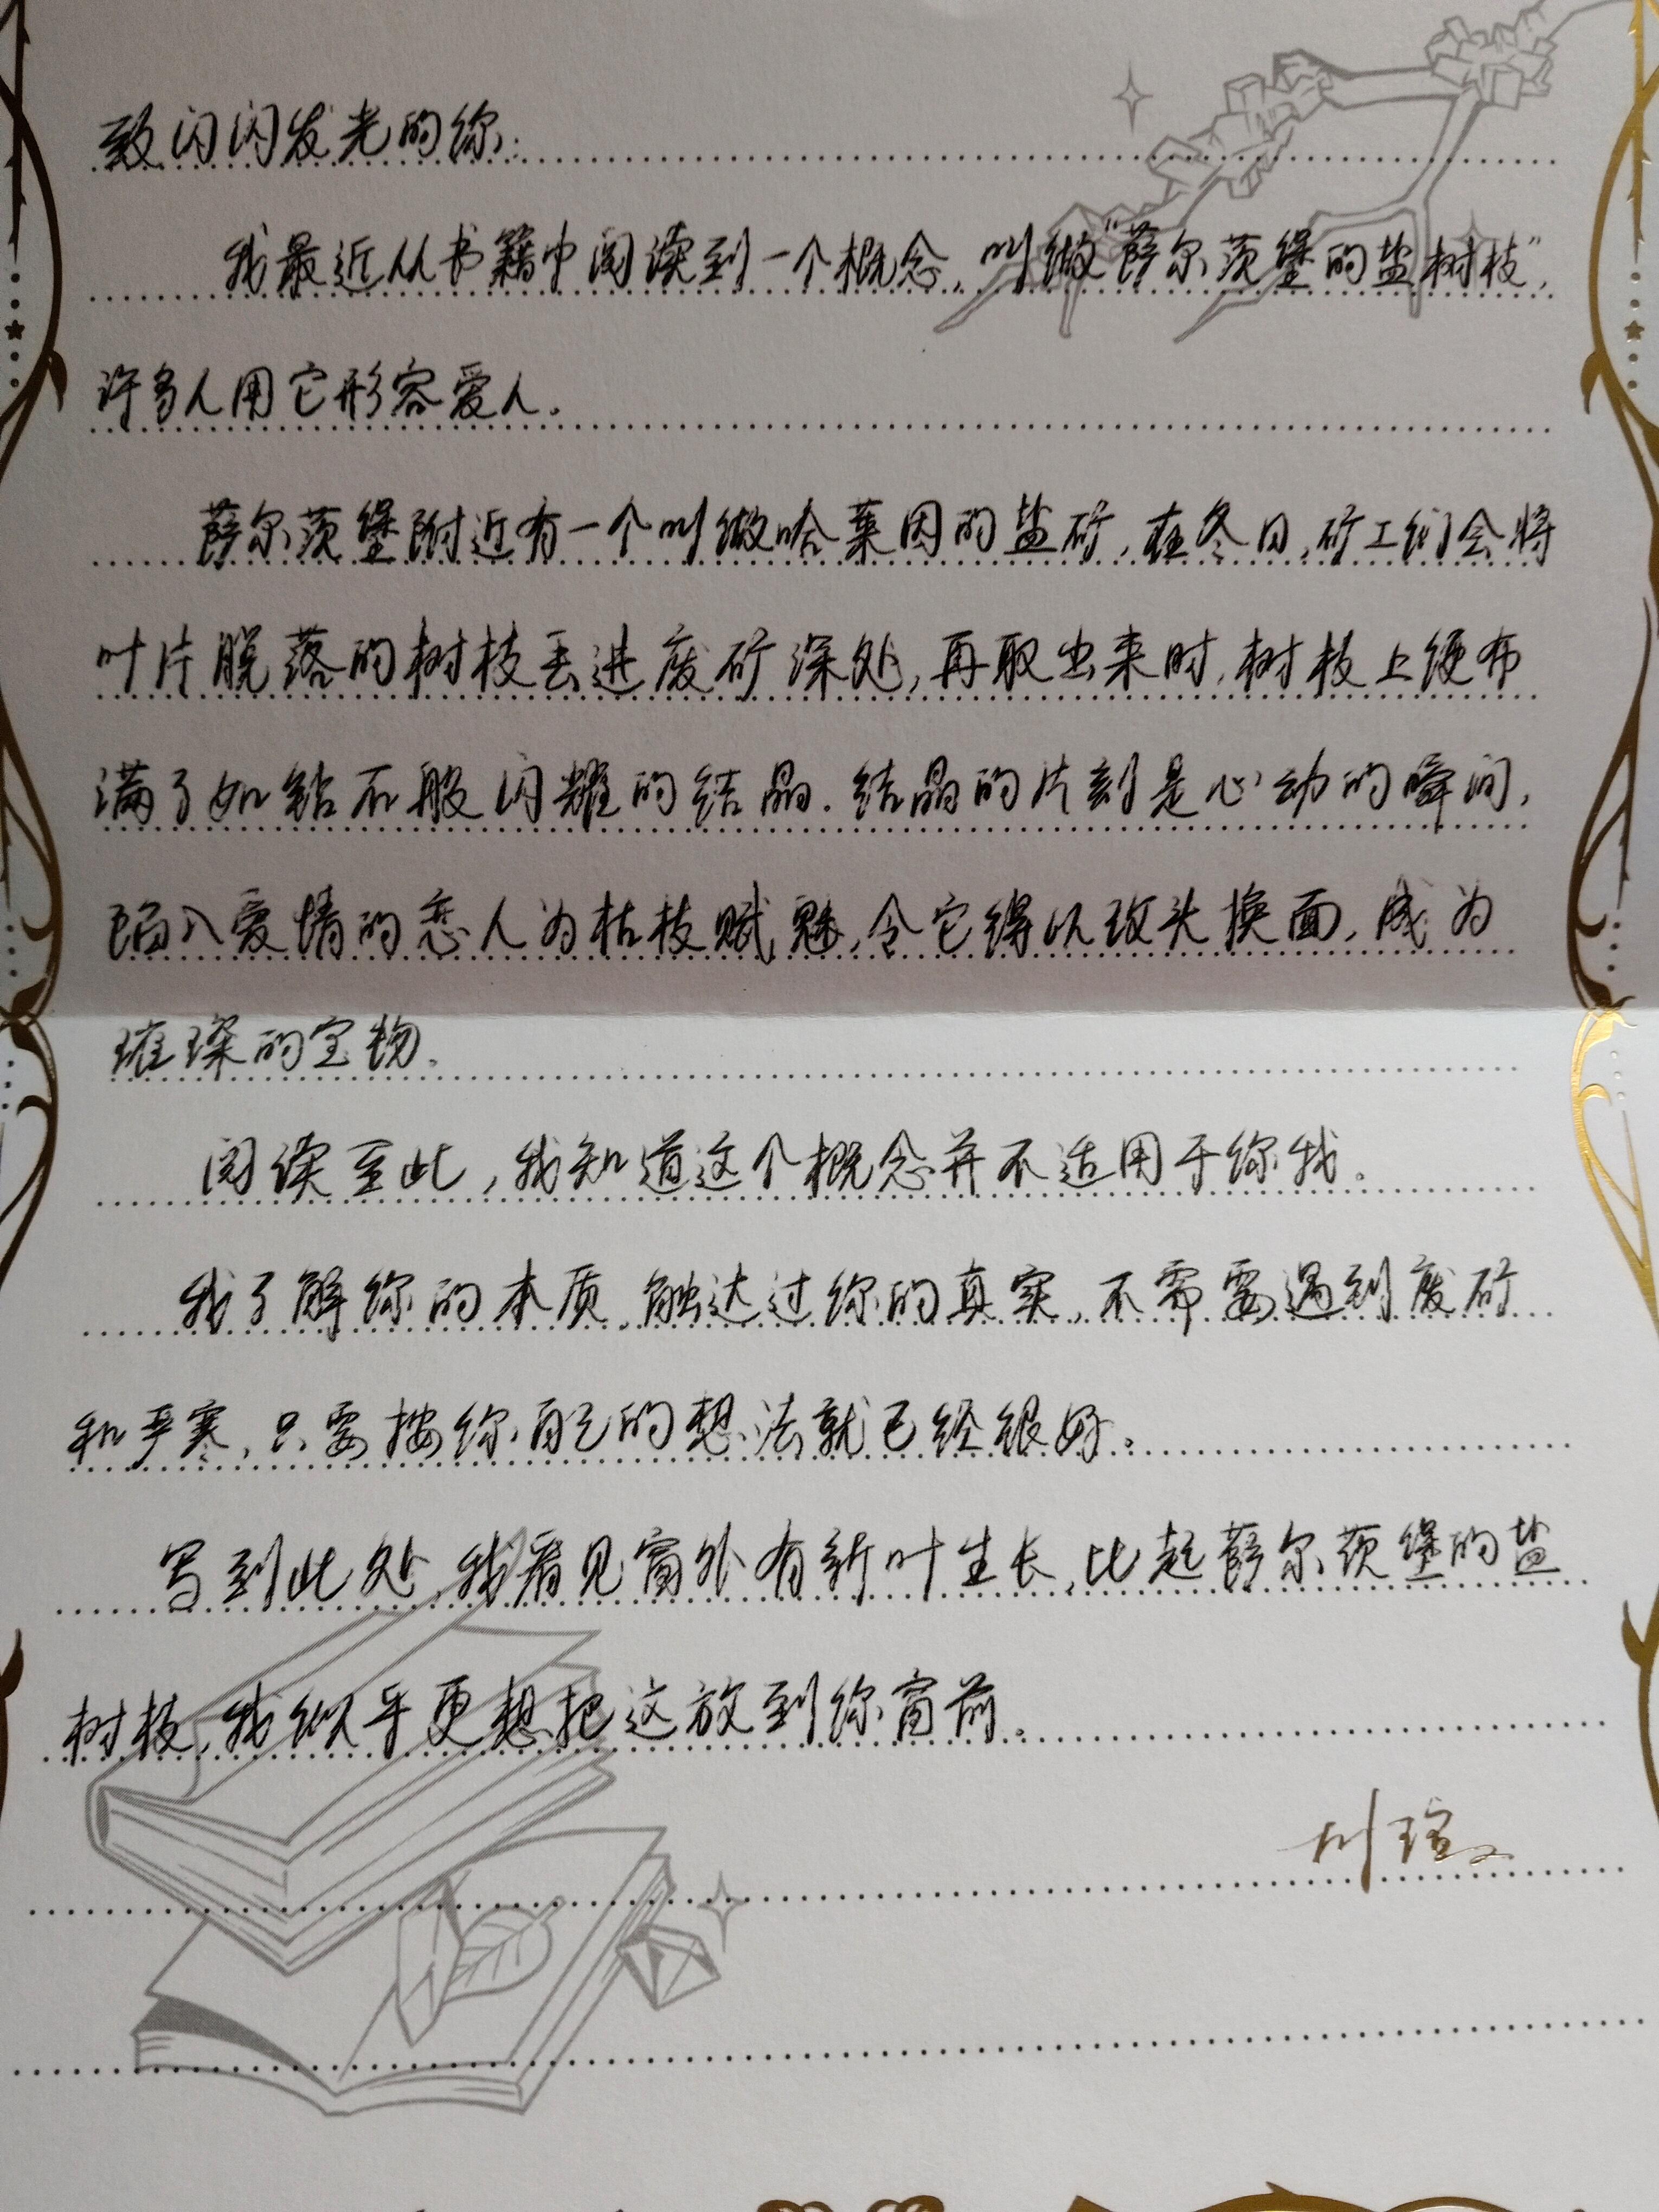 致闪闪发光的你：
我最近从书籍中阅读到一个概念，叫做“萨尔茨堡的盐树枝”，
许多人用它形容爱人。
萨尔茨堡附近有一个叫做哈莱因的盐矿，在冬日，矿工们会将
叶片脱落的树枝丢进废矿深处，再取出来时，树枝上便布
满了如钻石般闪耀的结晶。结晶的片刻是心动的瞬间，
陷入爱情的恋人为枯枝赋魅，令它得以改头换面，成为
璀璨的宝物。
阅读至此，我知道这个概念并不适用于你我。
我了解你的本质，触达过你的真实，不需要遇到废矿
和严寒，只要按你自己的想法就已经很好。
写到此处，我看见窗外有新叶生长，比起萨尔茨堡的盐
树枝，我似乎更想把这放到你窗前。